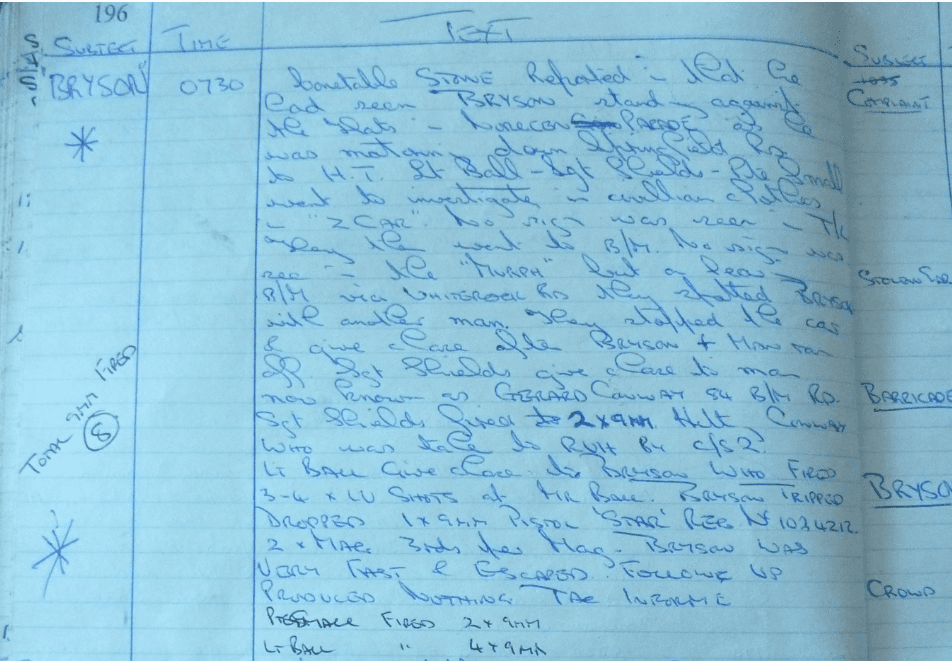 196
SUBJECT TIME TEXT
"BRYSON" 0730 Constable STOWE Reported :- that he
had seen BRYSON standing against
the flats - NORGLEN PARADE as he
was motoring down Springfield Rd
to H.T. Lt Ball - Sgt Shields - Pte Small
went to investigate in civilian clothes
in "Z CAR". No sign was seen - T/L
They then went to B/M. No sign was
seen in the "MURPH" but on leaving
B/M via WHITEROCK RD they spotted BRYSON
with another man. They stopped the car
& give chase after BRYSON + MAN ran
off Sgt Shields give chase to man
now known as GERARD CONWAY 84 B/M RD.
Sgt Shields fired 2 x 9MM Hit CONWAY
WHO was taken to RVH By c/s 2.
LT BALL Give chase to BRYSON WHO FIRED
3-4 x LV SHOTS at MR BALL. BRYSON TRIPPED
DROPPED 1 x 9MM PISTOL 'STAR' REG No 1034212
2 x MAG. 3rds per Mag. BRYSON WAS
VERY FAST & ESCAPED. FOLLOWE UP
PRODUCED NOTHING. TAC INFORME
PTE SMALL FIRED 2 x 9MM
LT BALL " 4 x 9MM
TOTAL 9MM FIRED
8
SUBJECT
COMPLAINT
STOLEN
BARRICADE
BRYSON
CROWD